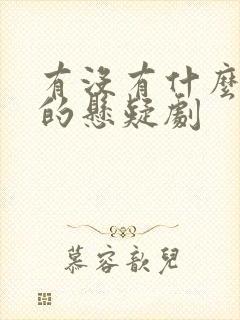 有沒有什麼
的懸疑劇
慕容歆兒